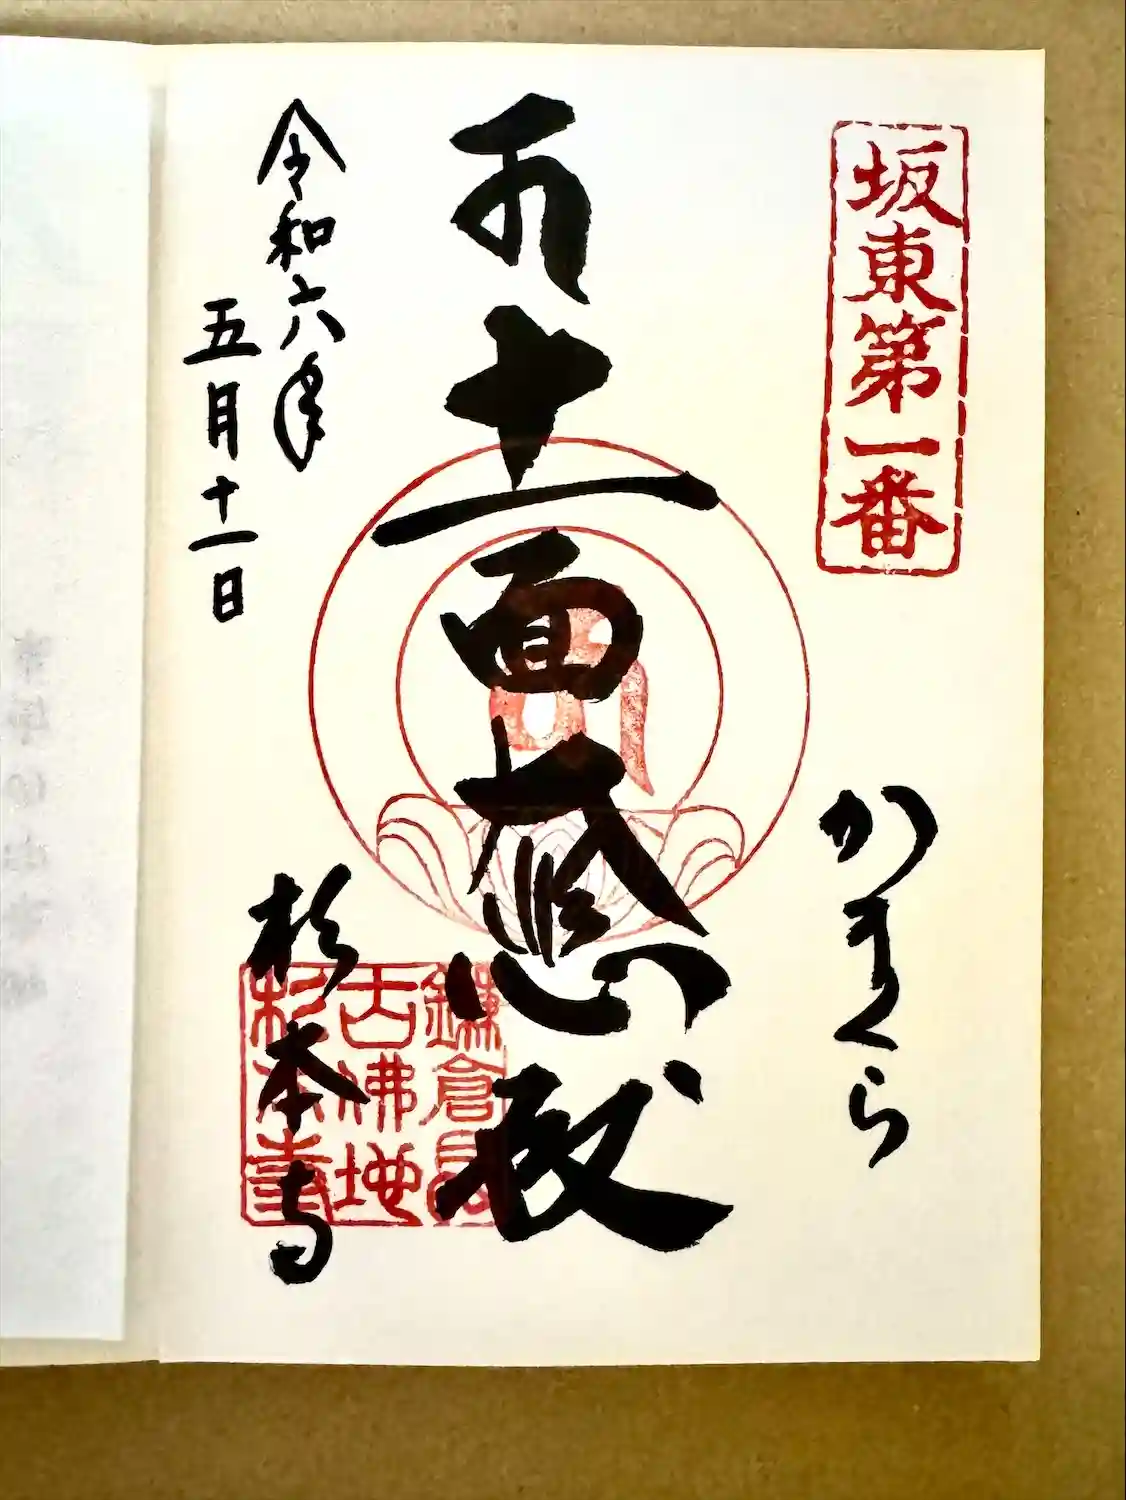 坂東第一番
かまくら
十一面大悲殿
鎌倉最
古佛地
杉本寺
令和六年
五月十一日
杉本寺